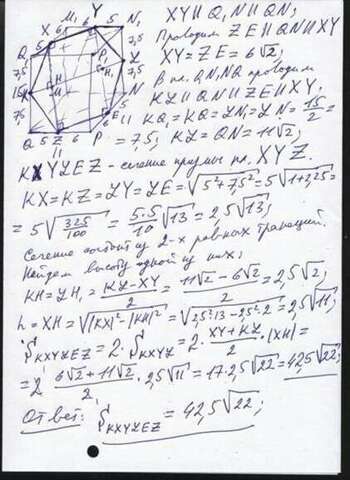 M₁ Y
X 6 5 N₁
5 6
Q₁
7,5 7,5
P₁ L
K H H₁
7,5 7,5
N
E
5 6
Q 5 Z 6 P
11
XY || Q₁N₁ || QN;
Проводим ZE || QN || XY
XY = ZE = 6√2;
В пл. QQ₁N₁N проводим
KL || QN || ZE || XY.
KQ₁ = KQ = LN₁ = LN = 15/2 =
= 7,5; KL = QN = 11√2;
KXYLEZ - сечение призмы пл. XYZ.
KX = KZ = LY = LE = √(5² + 7,5²) = 5√(1 + 2,25) =
= 5√(325/100) = 5·5/10 √13 = 2,5√13;
Сечение состоит из 2-х равных трапеций.
Найдем высоту одной из них;
KH = LH₁ = (KL - XY)/2 = (11√2 - 6√2)/2 = 2,5√2;
h = XH = √(|KX|² - |KH|²) = √(2,5²·13 - 2,5²·2) = 2,5√11;
S KXYLEZ = 2·S KXYL = 2·(XY + KL)/2·|XH| =
= 2 (6√2 + 11√2)/2 · 2,5√11 = 17·2,5√22 = 42,5√22;
Ответ: S KXYLEZ = 42,5√22;